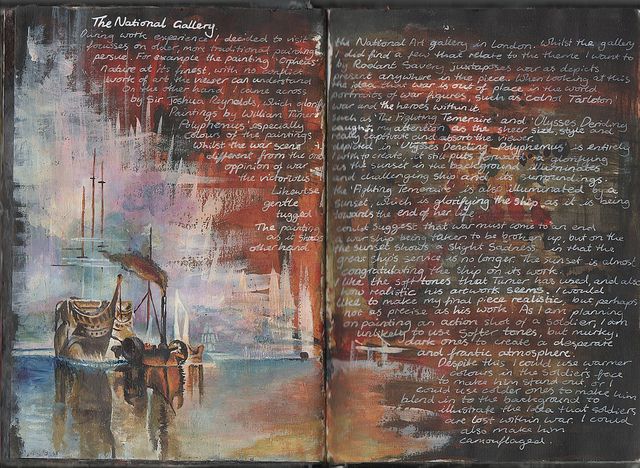 The National Gallery
During work experience I decided to visit the National Art gallery in London. Whilst the gallery
focusses on older, more traditional paintings I did find a few that relate to the theme I want to
persue. For example the painting 'Orpheus' by Roelant Savery juxtaposes war as depicts
Nature at its finest, with no conflict present anywhere in the piece. When looking at this
work we never can understand the idea that war is out of place in the world
On the other hand, I came across portraits of war figures, such as Colnol Tarleton
by Sir Joshua Reynolds, which glorify war and the heroes within it.
Paintings by William Turner such as 'The Fighting Temeraire' and 'Ulysses Deriding
Polyphemus' especially caught my attention as the sheer size, style and
colours of the paintings really captivate and absorb the viewer.
Whilst the war scene depicted in 'Ulysses Deriding Polyphemus is entirely
different from the one I wish to create, it still puts forward a glorifying
oppinion of war as the sunset in the background illuminates
the victorious & challenging ship and its surroundings.
Likewise the 'Fighting Temeraire' is also illuminated by a
gentle sunset, which is glorifying the ship as it is being
tugged towards the end of her life.
The painting could suggest that war must come to an end
as it shows a war ship being taken to be broken up, but on the
other hand the sunset shows a slight sadness in that the
great ships service is no longer. The sunset is almost
congratulating the ship on its work.
I like the soft tones that Turner has used, and also
how realistic his artwork seems. I would
like to make my final piece realistic, but perhaps
not as precise as his work. As I am planning
on painting an action shot of a soldier, I am
unlikely to use softer tones, but murky,
dark ones to create a desperate
and frantic atmosphere.
Despite this I could use warmer
colours in the soldiers face
to make him stand out, or I
could use colder ones to make him
blend in to the background to
illustrate the idea that soldiers
are lost within war. I could
also make him
camouflaged.